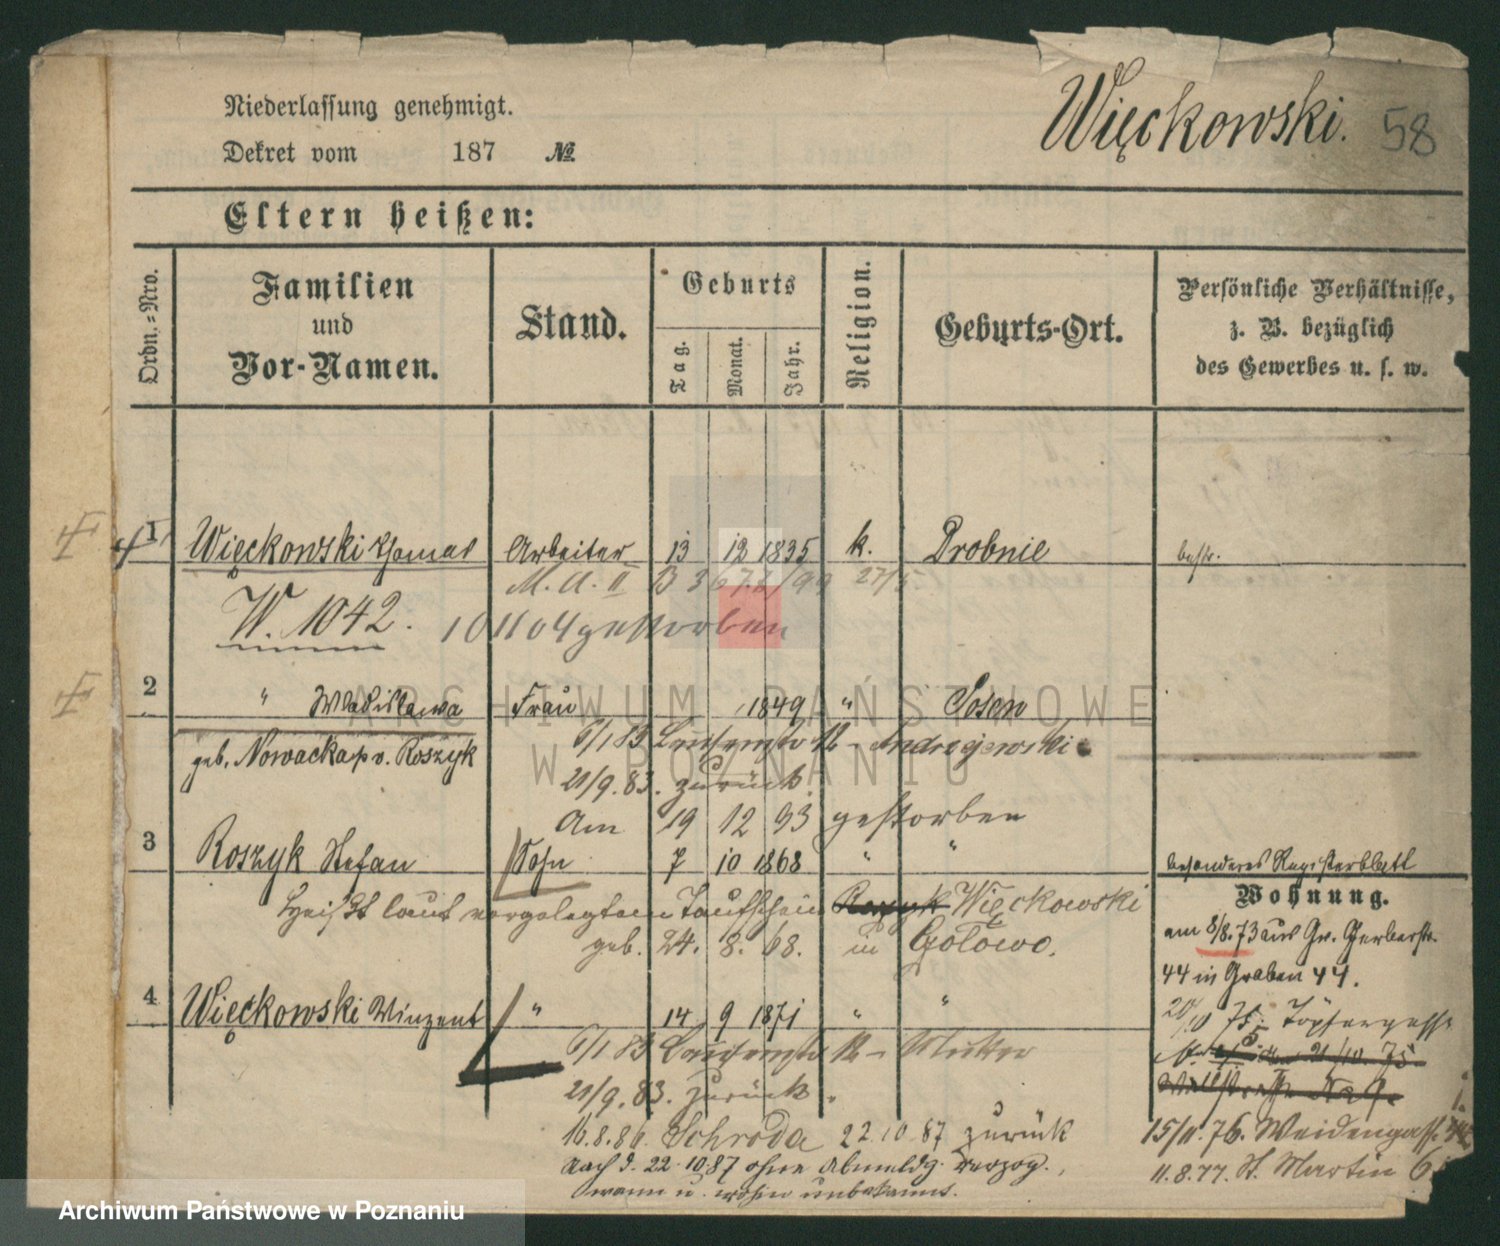 Niederlassung genehmigt.
Więckowski. 58
Dekret vom 187 №
Eltern heißen:
Ordn.-Nro.
Familien und Vor-Namen.
Stand.
Geburts
Tag. Monat. Jahr.
Religion.
Geburts-Ort.
Persönliche Verhältnisse,
z. B. bezüglich
des Gewerbes u. s. w.
1 Więckowski Thomas Arbeiter 13 12 1835 k. Drobnie bestr.
M. A. II B 367.2/99 27/5.
W. 1042. 10 11 04 gestorben
2 " Wladislawa Frau 1849 " Posen
geb. Nowacka p. v. Roszyk
6/1 83 12 - Andrzejewski
21/9. 83. zurück
Am 19 12 93 gestorben
3 Roszyk Stefan Sohn 7 10 1868 " " besonderes Registerblatt
Heißt laut vorgelegtem Taufschein Roszyk Więckowski
geb. 24. 8. 68. in Gołowo.
Wohnung.
am 8/8. 73 aus Gr. Gerberstr.
44 in Graben 44.
4 Więckowski Winzent " 14 9 1871 " "
6/1 83 12 - Mutter
21/9. 83. zurück.
16. 8. 86. Schroda 22 10 87 zurück
nach d. 22. 10 87 ohne Abmeldg. verzog.,
wann u. wohin unbekannt.
20/10 75. Töpfergasse
21/10. 75
Wallstrasse No
15/11. 76. Weidengasse
11. 8. 77. St. Martin 6
ARCHIWUM PAŃSTWOWE
W POZNANIU
Archiwum Państwowe w Poznaniu